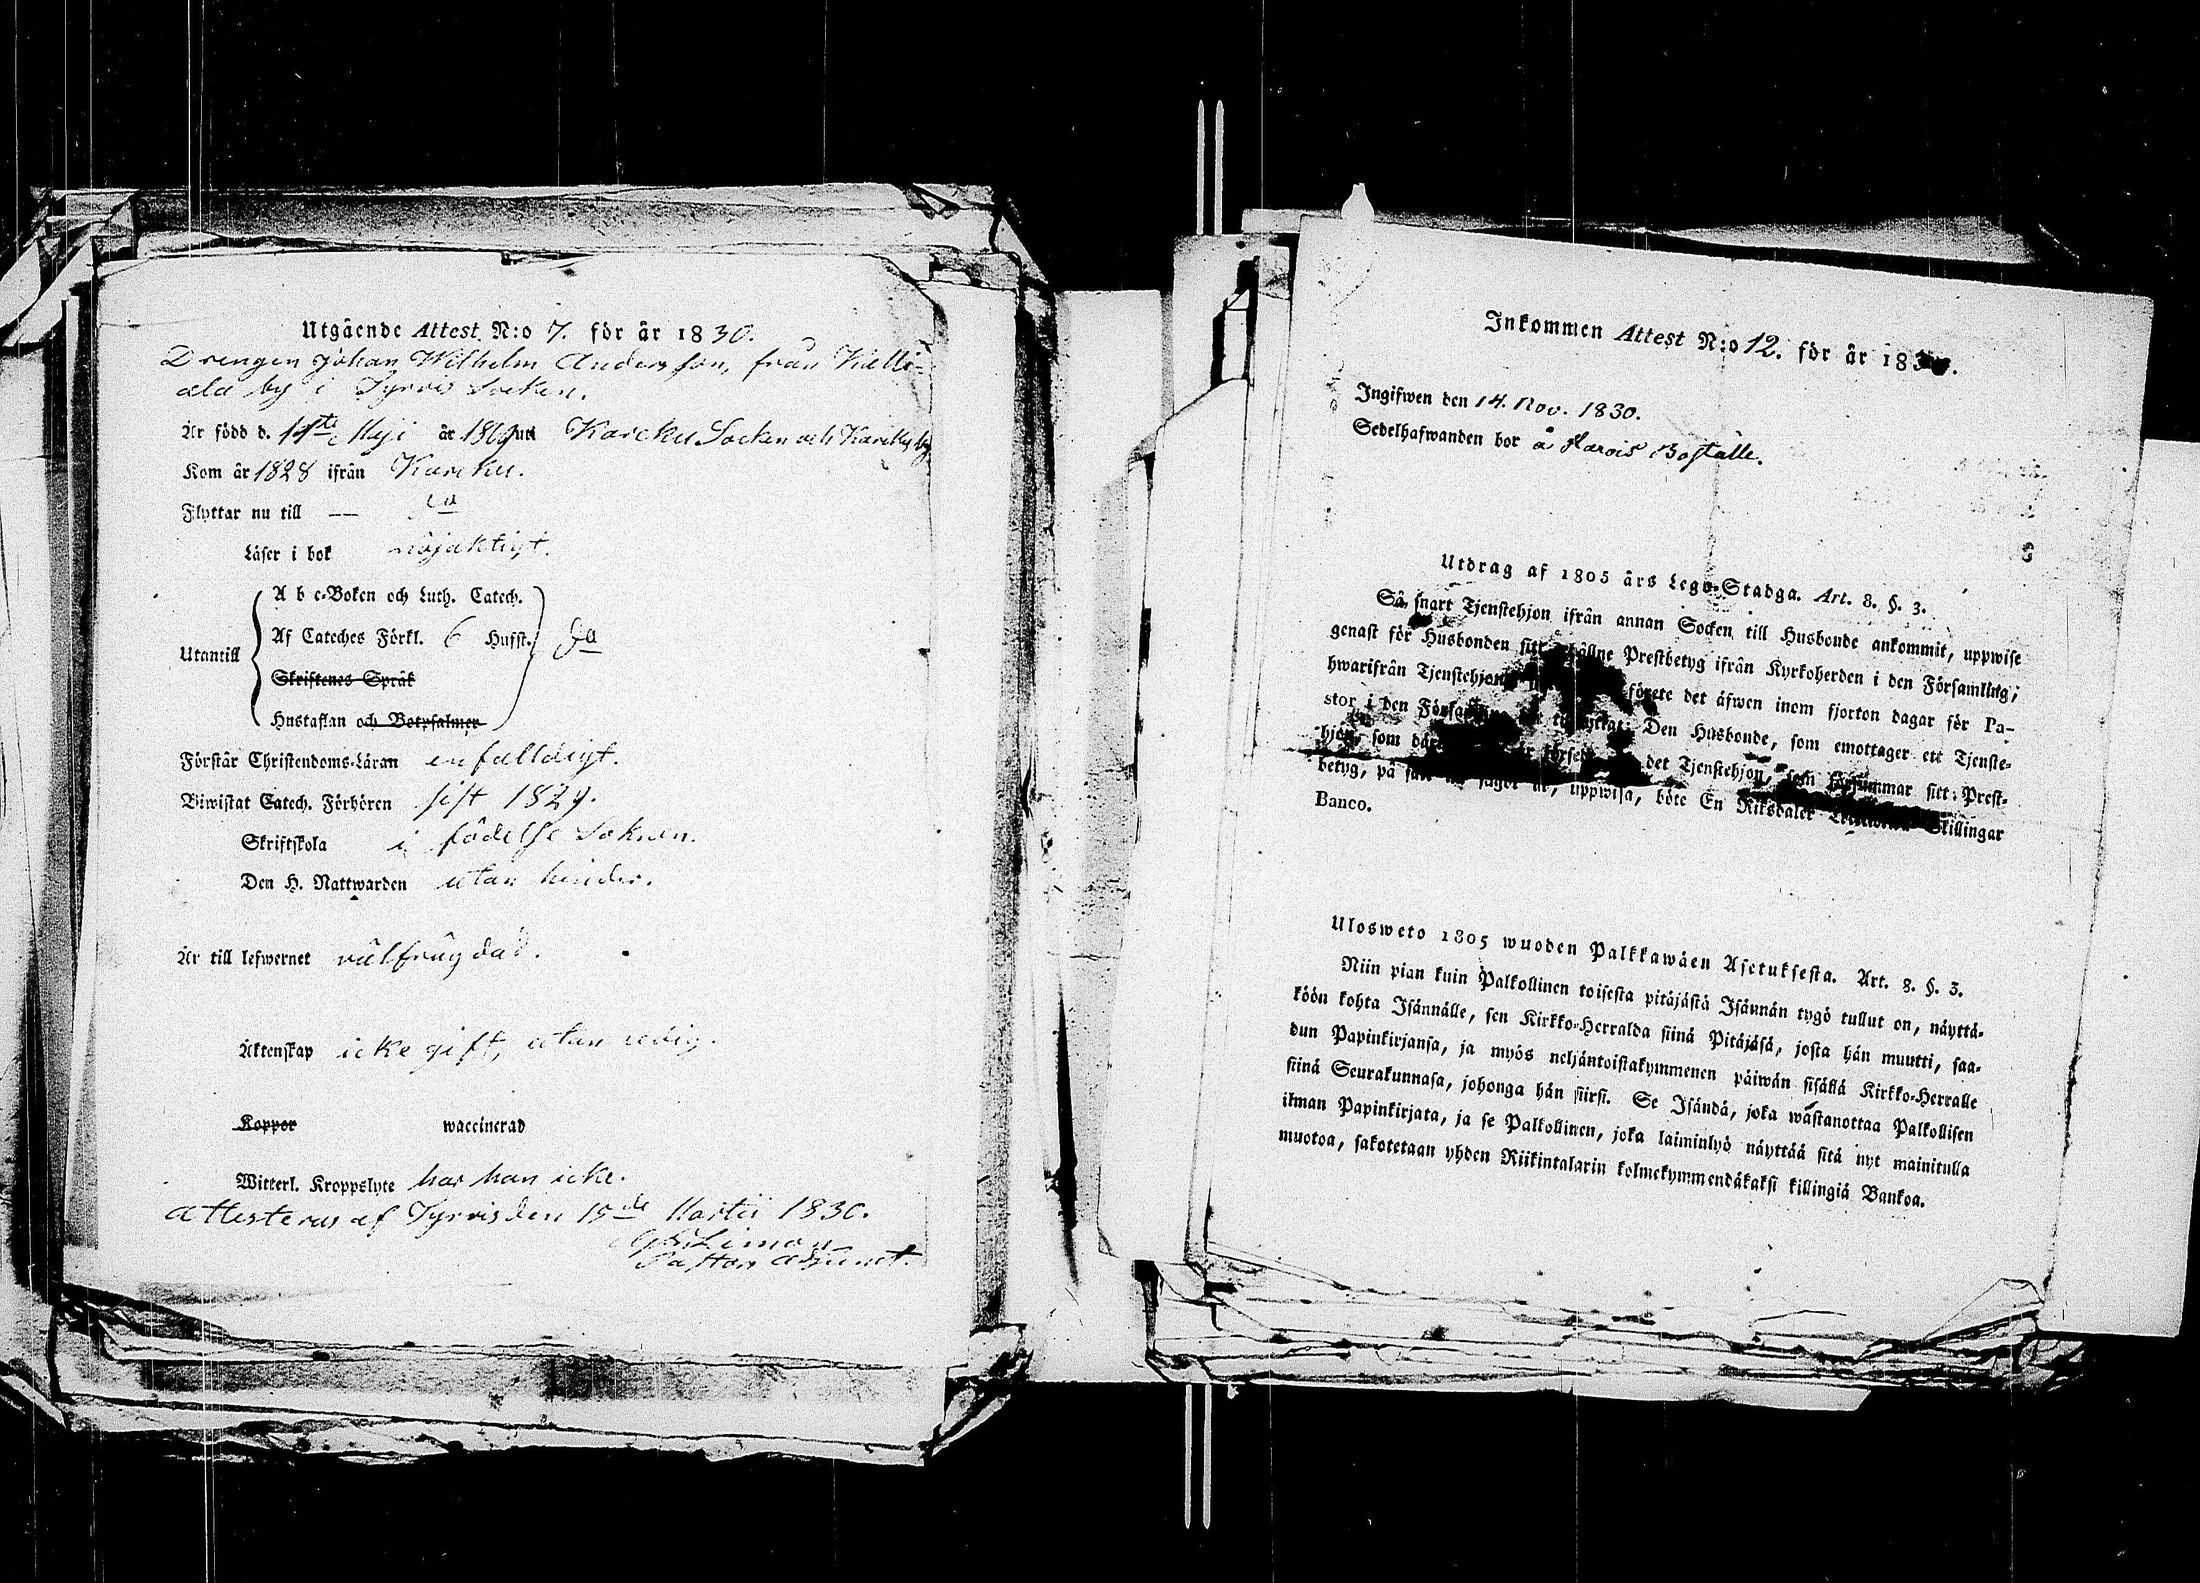 Utgående Attest N:o 7. för år 1830.
Drengen Johan Wilhelm Andersson, från Kalli-
ala by i Tyrvis Socken.
Är född d. 11te Maji år 1809 uti Karcku Socken och Karcku by
Kom år 1828 ifrån Karcku.
Flyttar nu till —
Läser i bok nöjaktigt.
A b c-Boken och Luth. Catech.
Af Cateches Förkl. 6 Hufst. Ja
Utantill
Skriftenes Språk
Hustaflan och Botpsalmer
Förstår Christendoms-Läran enfalldigt.
Biwistat Catech. Förhören sist 1829.
Skriftskola i födelse Soknen.
Den H. Nattwarden utan hinder.
Är till lefwernet välfrägdad.
Äktenskap icke gift, utan ledig.
Koppor waccinerad
Witterl. Kroppslyte har han icke.
Attesteras af Tyrvis den 15de Martii 1830.
Limon
Pastors Adjunct.
Inkommen Attest N:o 12. för år 1830.
Ingifwen den 14. Nov. 1830.
Sedelhafwanden bor å Boställe.
Utdrag af 1805 års Lego-Stadga. Art. 8. §. 3.
Så snart Tjenstehjon ifrån annan Socken till Husbonde ankommit, uppwise
genast för Husbonden sitt Prestbetyg ifrån Kyrkoherden i den Församling,
hwarifrån Tjenstehjon förete det äfwen inom fjorton dagar för Pa-
stor i den Den Husbonde, som emottager ett Tjenste-
hjon, som det Tjenstehjon, som försummar sitt Prest-
betyg, på uppwisa, böte En Riksdaler Skillingar
Banco.
Uloswеto 1805 wuoden Palkkawäen Asetuksesta. Art. 8. §. 3.
Niin pian kuin Palkollinen toisesta pitäjästä Isännän tygö tullut on, näyttä-
köön kohta Isännälle, sen Kirkko-Herralda siinä Pitäjäsä, josta hän muutti, saa-
dun Papinkirjansa, ja myös neljäntoistakymmenen päiwän sisällä Kirkko-Herralle
siinä Seurakunnasa, johonga hän siirsi. Se Isändä, joka wastanottaa Palkollisen
ilman Papinkirjata, ja se Palkollinen, joka laiminlyö näyttää sitä nyt mainitulla
muotoa, sakotetaan yhden Riikintalarin kolmekymmendäkaksi killingiä Bankoa.